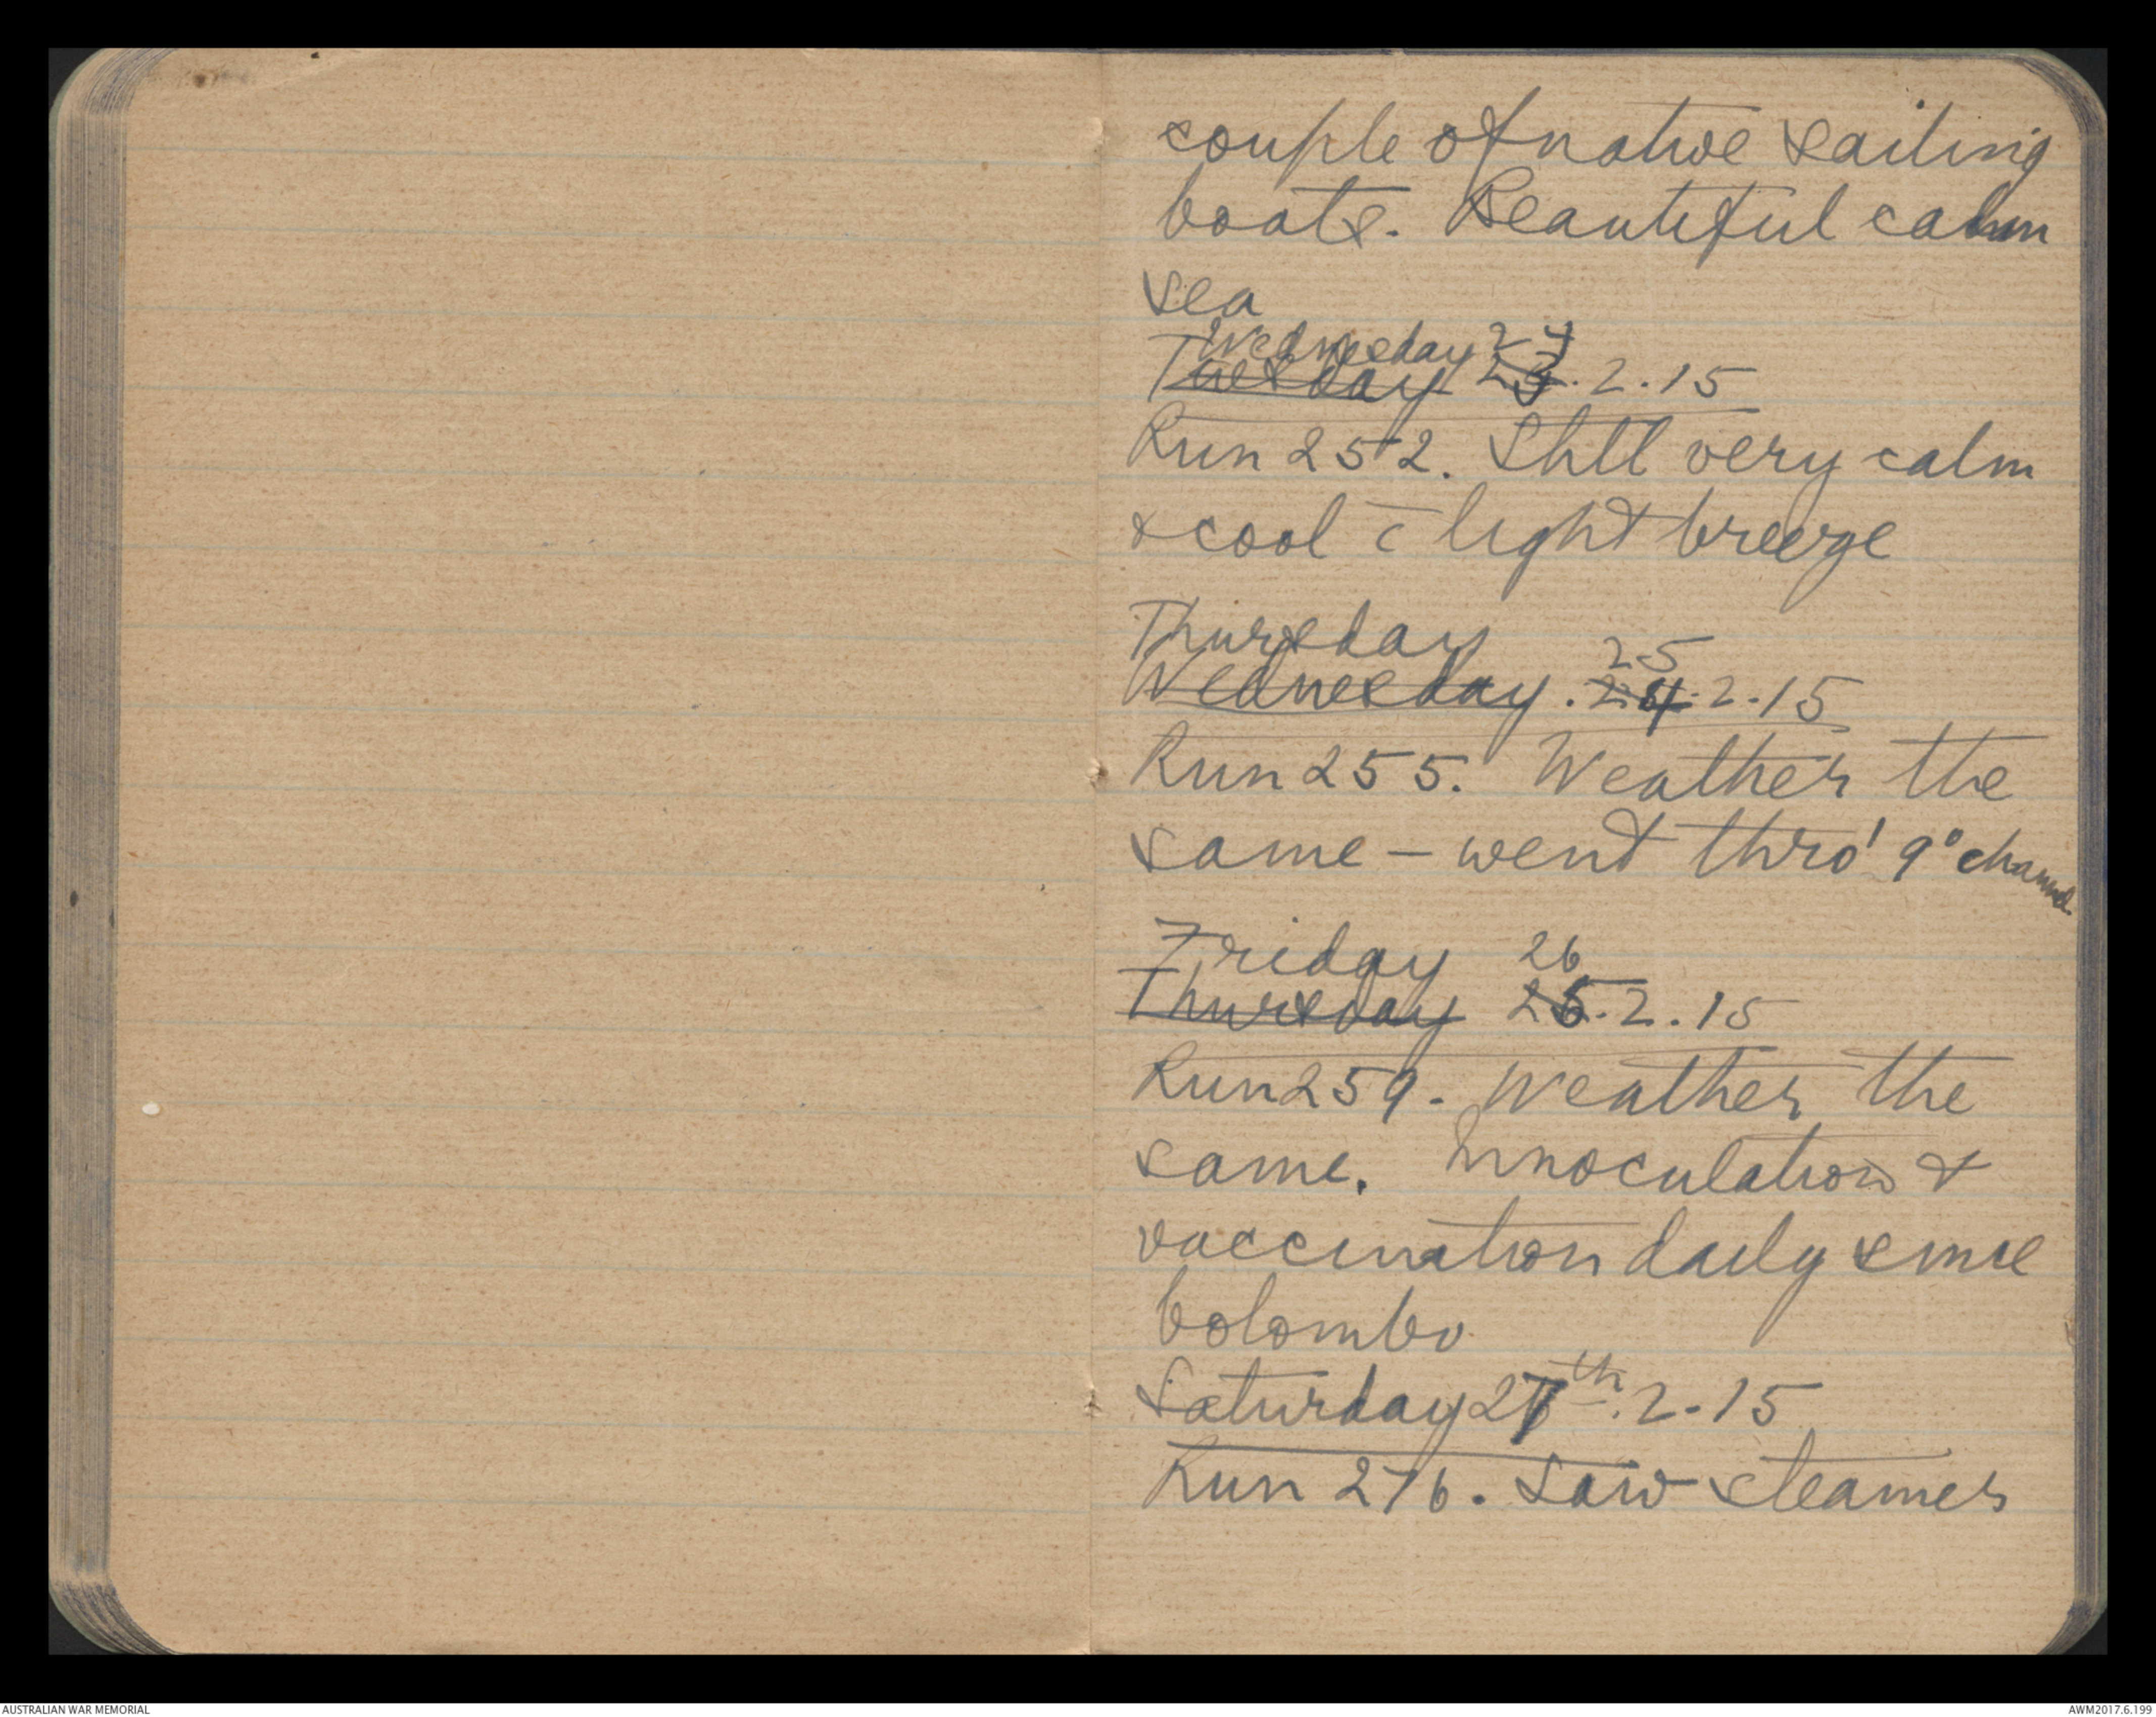 couple of native sailing
boats. Beautiful calm
sea
Wednesday 24
Tuesday 23.2.15
Run 252. Still very calm
& cool c̄ light breeze
Thursday 25
Wednesday. 24.2.15
Run 255. Weather the
same - went thro' 9° channel
Friday 26
Thursday 25.2.15
Run 259. Weather the
same. Innoculation &
vaccination daily since
Colombo
Saturday 27th.2.15
Run 276. Saw steamer
AUSTRALIAN WAR MEMORIAL
AWM2017.6.199